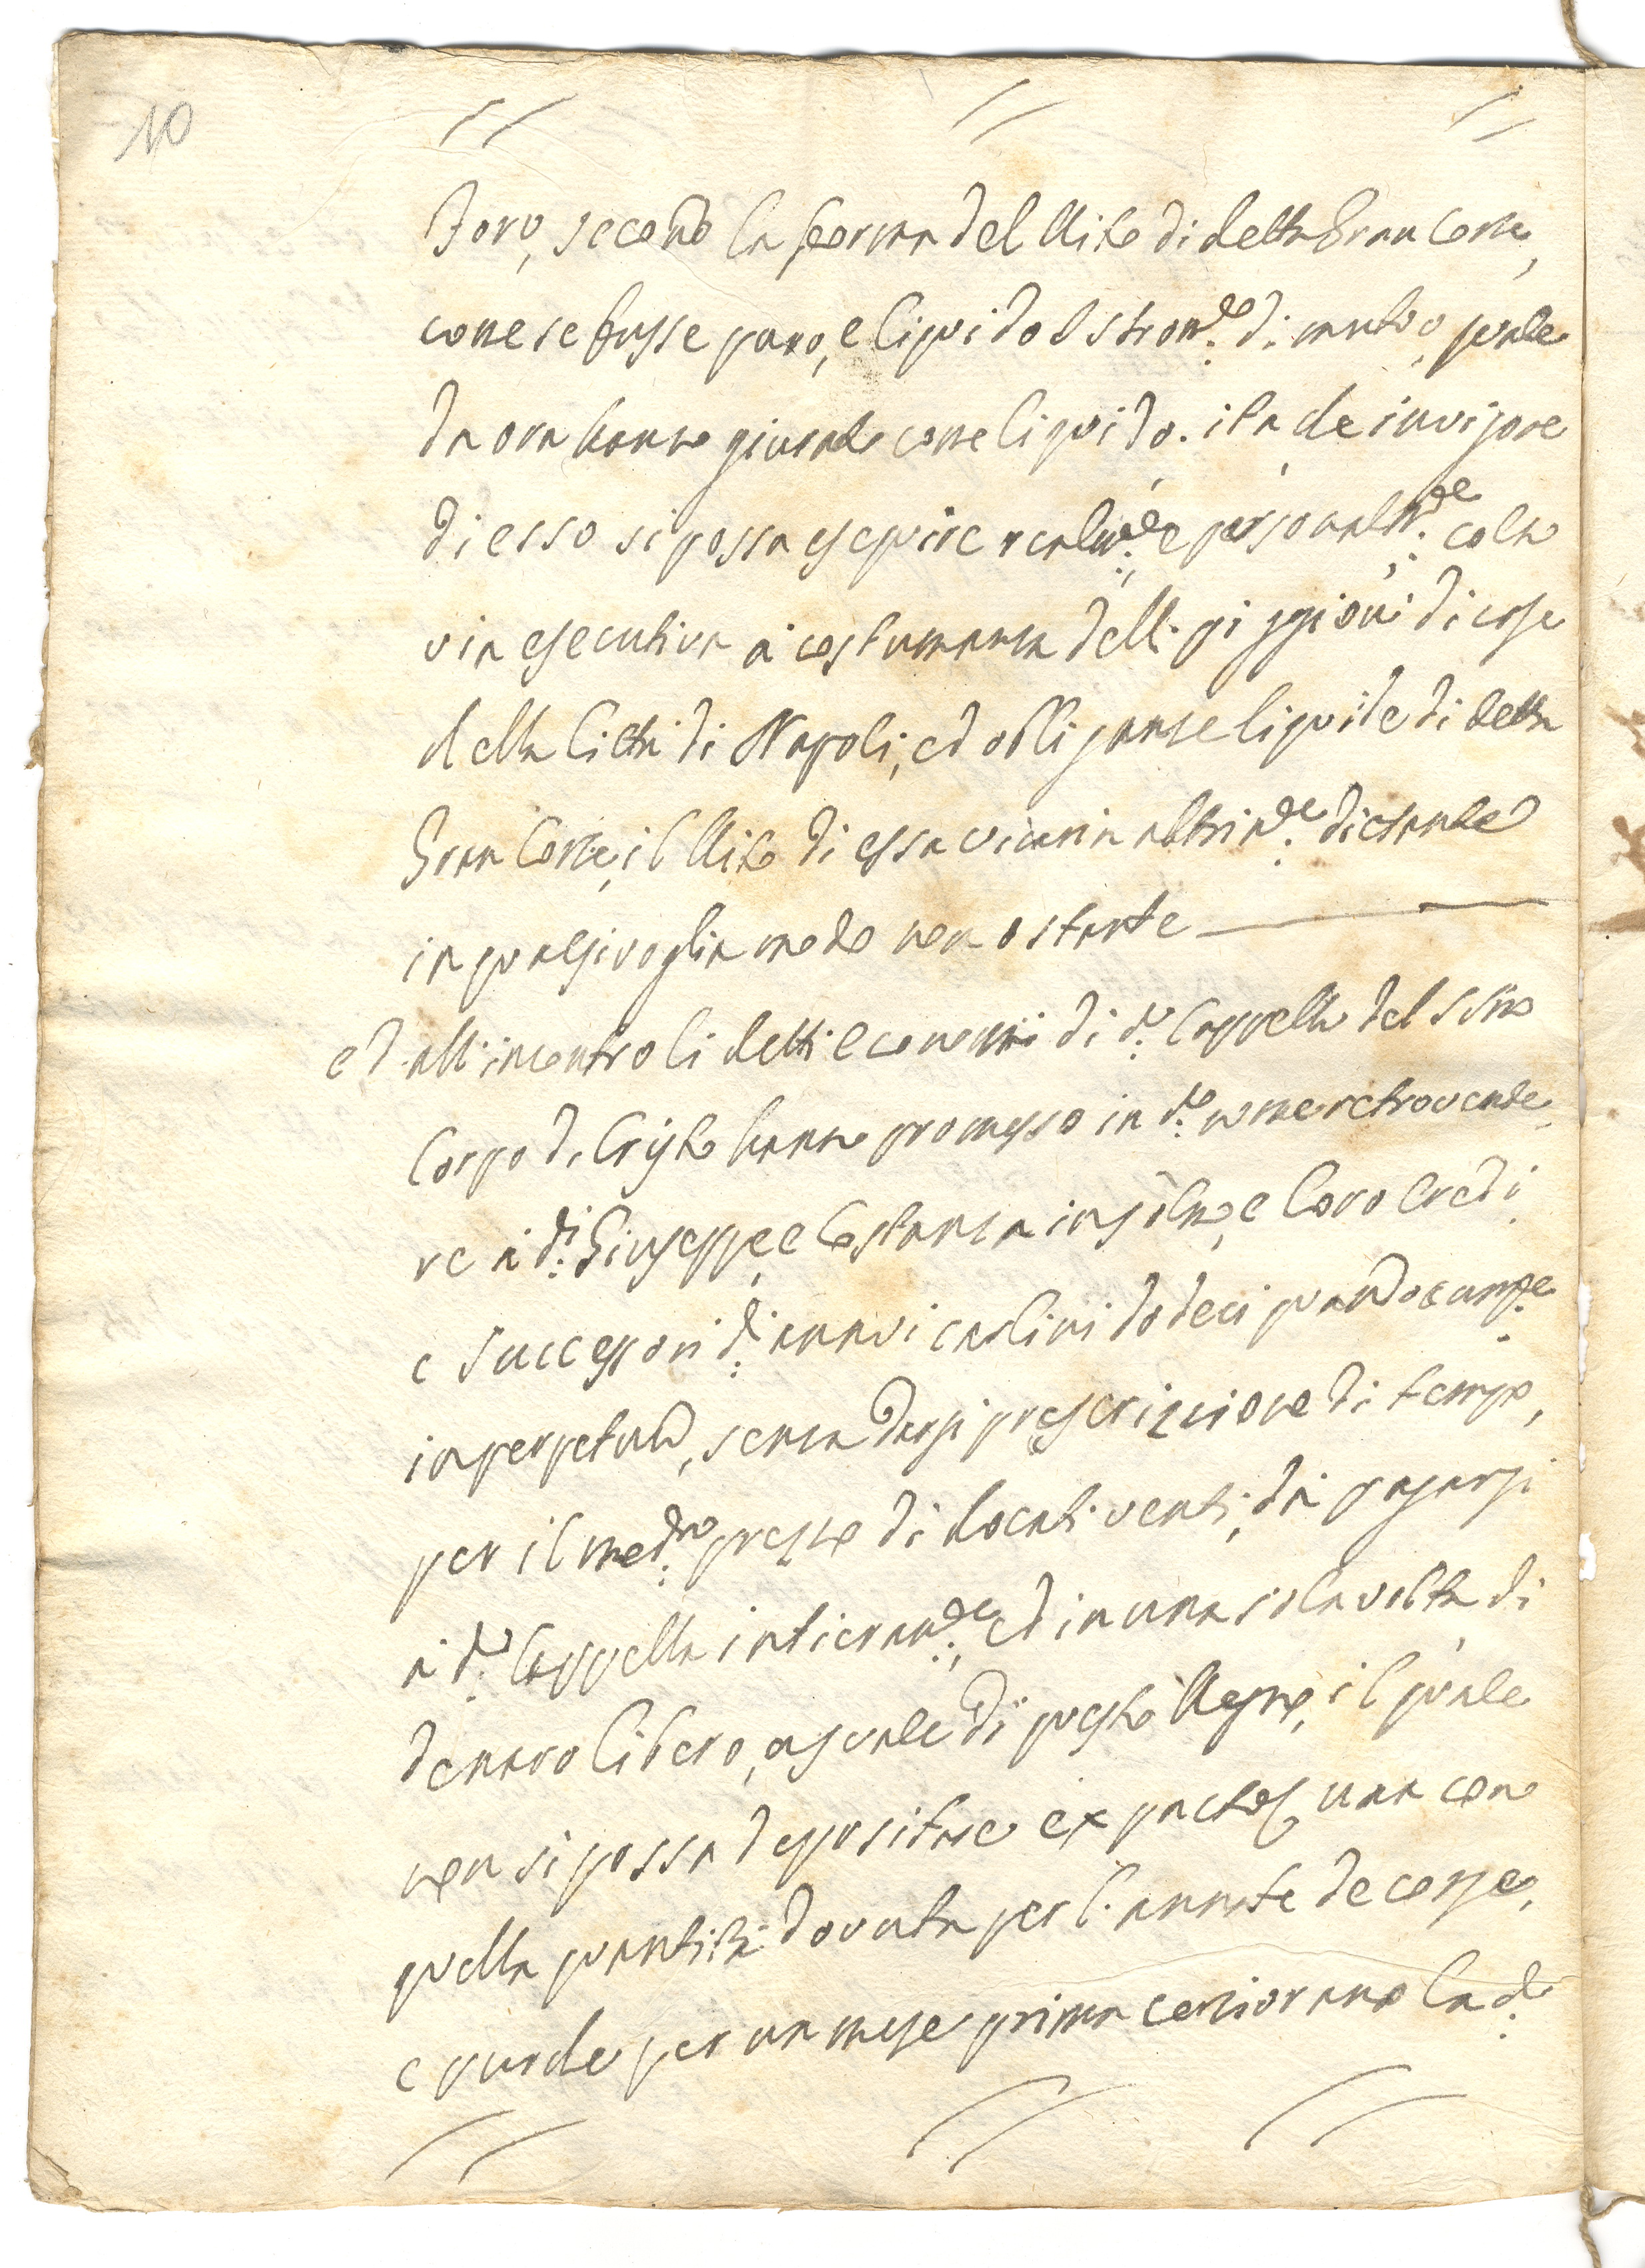 10
Foro, secondo la forma del Rito di detta Gran Corte,
come se fusse puro, e liquido Istrom.to di mutuo, quale
da ora hanno giurato come liquido. ita che in vigore
di esso si possa esequire realm.te, e personalm.te, colla
via esecutiva à costumanza delli piggioni di case
della Città di Napoli, ed obliganze liquide di detta
Gran Corte, il Rito di essa vicaria altrim.te dictante
in qualsivoglia modo non ostante
ed all'incontro li detti economi di d.a Cappella del SSmo
Corpo di Cristo hanno promesso in d.o nome retrovende
re à d.i Giuseppe, e Costanza insolm, e loro eredi
e successori d.i annui carlini dodeci quandocumq.e
in perpetuū, senza darsi prescrizzione di tempo,
per il med.mo prezzo di docati venti, da pagarsi
à d.a Cappella intieram.te, ed in una sola volta di
denaro libero, usuale di questo Regno, il quale
non si possa depositare ex pacto, una con
quella quantità dovuta per l'annate decorse,
e purche per un mese prima cerziorano la d.a